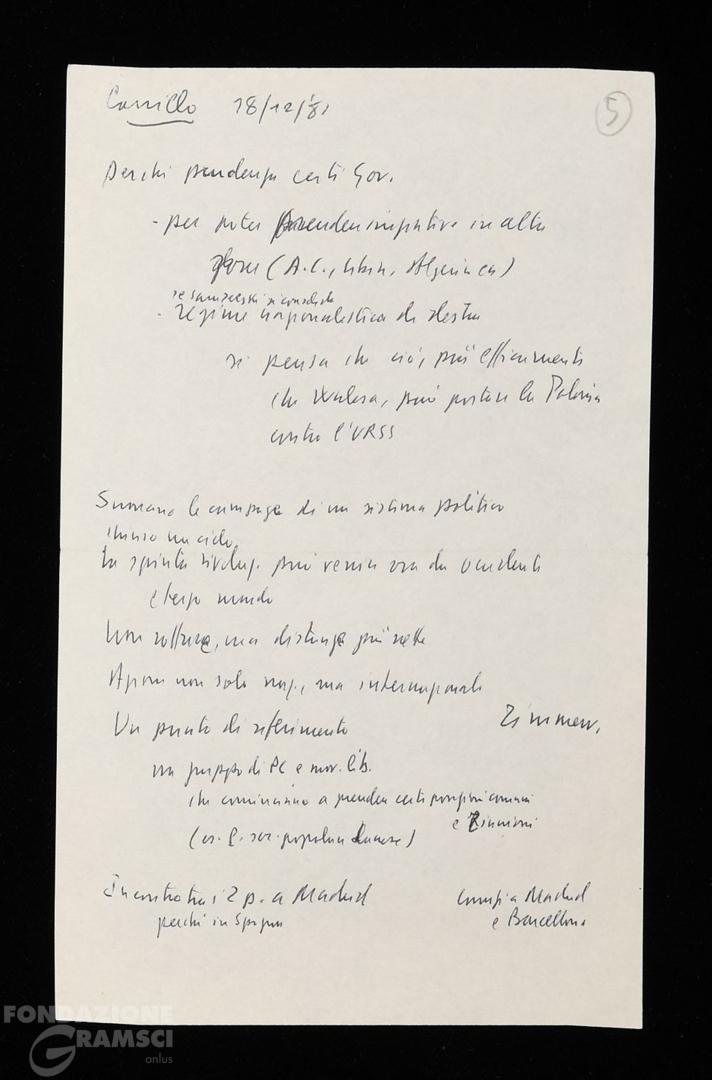 Carrillo 18/12/'81
5
Perché prudenza certi Gov.
- per poter prender iniziative in altre
zone (A.C., Libia, Algeria ecc)
se Jaruzelski si consolida
- regime nazionalistico di destra
si pensa che ciò, più efficacemente
che Walesa, può portare la Polonia
contro l'URSS
la compage di un sistema politico
chiuso un ciclo.
La spinta rivoluz. può venire ora da occidente
e terzo mondo
Non rottura, ma distanze più nette
Azione non solo naz., ma internazionale
Un punto di riferimento
Zimmerv.
un gruppo di PC e mov. lib.
che cominciano a prender certe posizioni comuni
e riunioni
(es. P. soc. popolare danese)
Incontro tra i 2 p. a Madrid
perché in Spagna
Comizi a Madrid
e Barcellona
FONDAZIONE
GRAMSCI
onlus